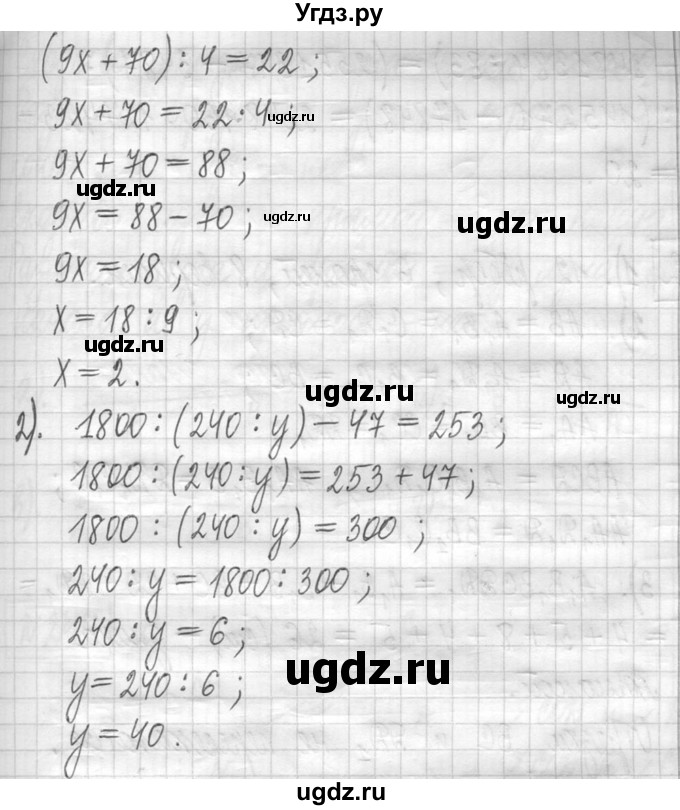 Угдз.ру
(9x + 70) : 4 = 22 ;
9x + 70 = 22 · 4 ;
ugdz.ru
9x + 70 = 88 ;
ugdz.ru
9x = 88 - 70 ;
ugdz.ru
ugdz.ru
9x = 18 ;
x = 18 : 9 ;
ugdz.ru
x = 2 .
ugdz.ru
ugdz.ru
2). 1800 : (240 : y) - 47 = 253 ;
1800 : (240 : y) = 253 + 47 ;
1800 : (240 : y) = 300 ;
240 : y = 1800 : 300 ;
240 : y = 6 ;
ugdz.ru
y = 240 : 6 ;
y = 40 .
ugdz.ru